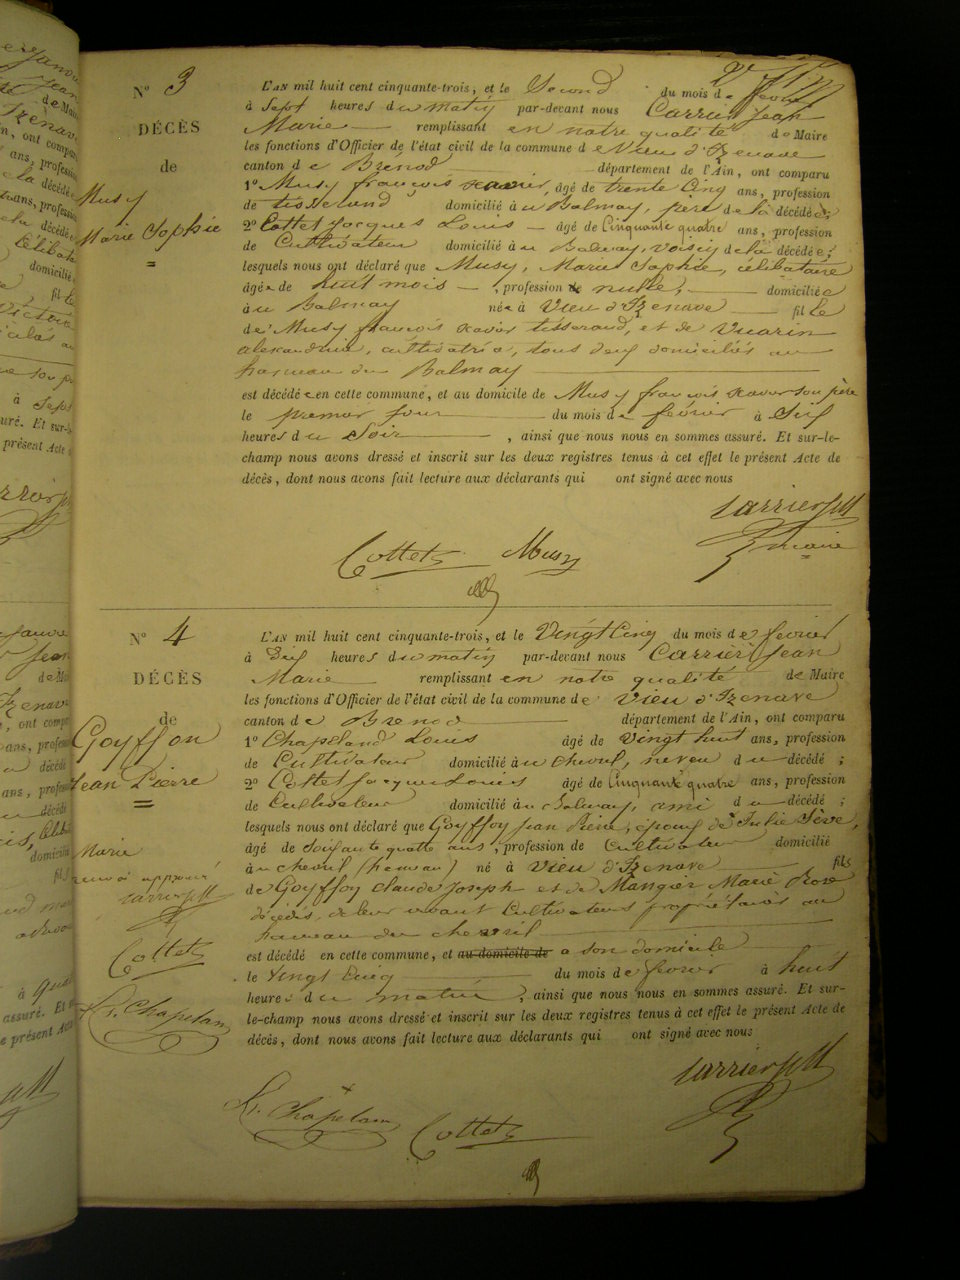 N° 3
DÉCÈS
de
Musy
Marie Sophie
L'AN mil huit cent cinquante-trois, et le Second du mois de fevrier
à Sept heures du matin par-devant nous Carrier Jean
Marie remplissant en notre qualité de Maire
les fonctions d'Officier de l'état civil de la commune de Vieu d'Izenave
canton de Brénod département de l'Ain, ont comparu
1° Musy françois xavier, âgé de trente Cinq ans, profession
de tisserand domicilié au Balmay, père de la décédée;
2° Cottet Jacques Louis âgé de Cinquante quatre ans, profession
de Cultivateur domicilié au Balmay, voisin de la décédée;
lesquels nous ont déclaré que Musy, Marie Sophie, célibataire
âgée de huit mois, profession de nulle, domiciliée
au Balmay née à Vieu d'Izenave fille
de Musy françois xavier tisserand, et de Vuarin
alexandrine, cultivatrice, tous deux domiciliés au
hameau du Balmay
est décédée en cette commune, et au domicile de Musy françois xavier son père
le premier jour du mois de fevrier à Six
heures du Soir, ainsi que nous nous en sommes assuré. Et sur-le-
champ nous avons dressé et inscrit sur les deux registres tenus à cet effet le présent Acte de
décès, dont nous avons fait lecture aux déclarants qui ont signé avec nous
Carrier JM
maire
Cottet Musy
N° 4
DÉCÈS
de
Goyffon
Jean Pierre
L'AN mil huit cent cinquante-trois, et le Vingt Cinq du mois de fevrier
à Dix heures du matin par-devant nous Carrier Jean
Marie remplissant en notre qualité de Maire
les fonctions d'Officier de l'état civil de la commune de Vieu d'Izenave
canton de Brenod département de l'Ain, ont comparu
1° Chapeland Louis âgé de Vingt huit ans, profession
de Cultivateur domicilié au chevril, neveu du décédé;
2° Cottet Jacques Louis âgé de Cinquante quatre ans, profession
de Cultivateur domicilié au Balmay, ami du décédé;
lesquels nous ont déclaré que Goyffon Jean Pierre, époux de Julie Sève,
âgé de Soixante quatre ans, profession de Cultivateur domicilié
au chevril (hameau) né à Vieu d'Izenave fils
de Goyffon Claude Joseph et de Mangier Marie Rose
décédés, de leur vivant Cultivateurs propriétaires au
hameau du chevril
est décédé en cette commune, et au domicile de a son domicile
le Vingt Cinq du mois de fevrier à huit
heures du matin, ainsi que nous nous en sommes assuré. Et sur-
le-champ nous avons dressé et inscrit sur les deux registres tenus à cet effet le présent Acte de
décès, dont nous avons fait lecture aux déclarants qui ont signé avec nous
Marie
renvoi approuvé
Carrier JM
Cottet
L. Chapelan
Carrier JM
L. Chapelan Cottet